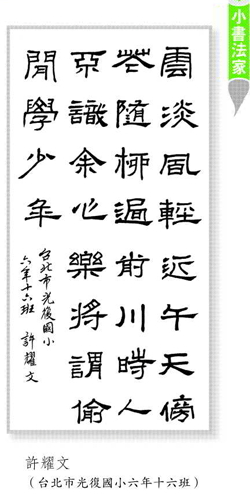 小書法家
雲淡風輕近午天傍
花隨柳過前川時人
不識余心樂將謂偷
閒學少年
台北市光復國小
六年十六班 許耀文
許耀文
（台北市光復國小六年十六班）